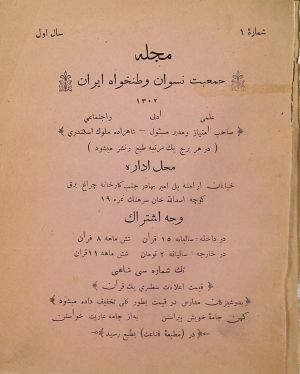 شمارهٔ ۱
سال اول
مجله
جمعیت نسوان وطنخواه ایران
۱۳۰۲
علمی ادبی واجتماعی
صاحب امتیاز ومدیر مسئول – شاهزاده ملوک اسکندری
(در هر برج یك مرتبه طبع و نشر میشود)
محل اداره
خیابان ارامنه پل امیر بهادر جنب کارخانه چراغ برق
کوچه اسدالله خان سرهنك نمره ۱۹
وجه اشتراك
در داخله : سالیانه ۱۵ قران شش ماهه ۸ قران
در خارجه : سالیانه ۲ تومان شش ماهه ۱۱ قران
تك شماره سی شاهی
قیمت اعلانات سطری یك قران
بدوشیزگان مدارس در قیمت بطور کلی تخفیف داده میشود
کهن جامهٔ خویش پیراستن به از جامه عاریت خواستن
در (مطبعهٔ قناعت) بطبع رسید